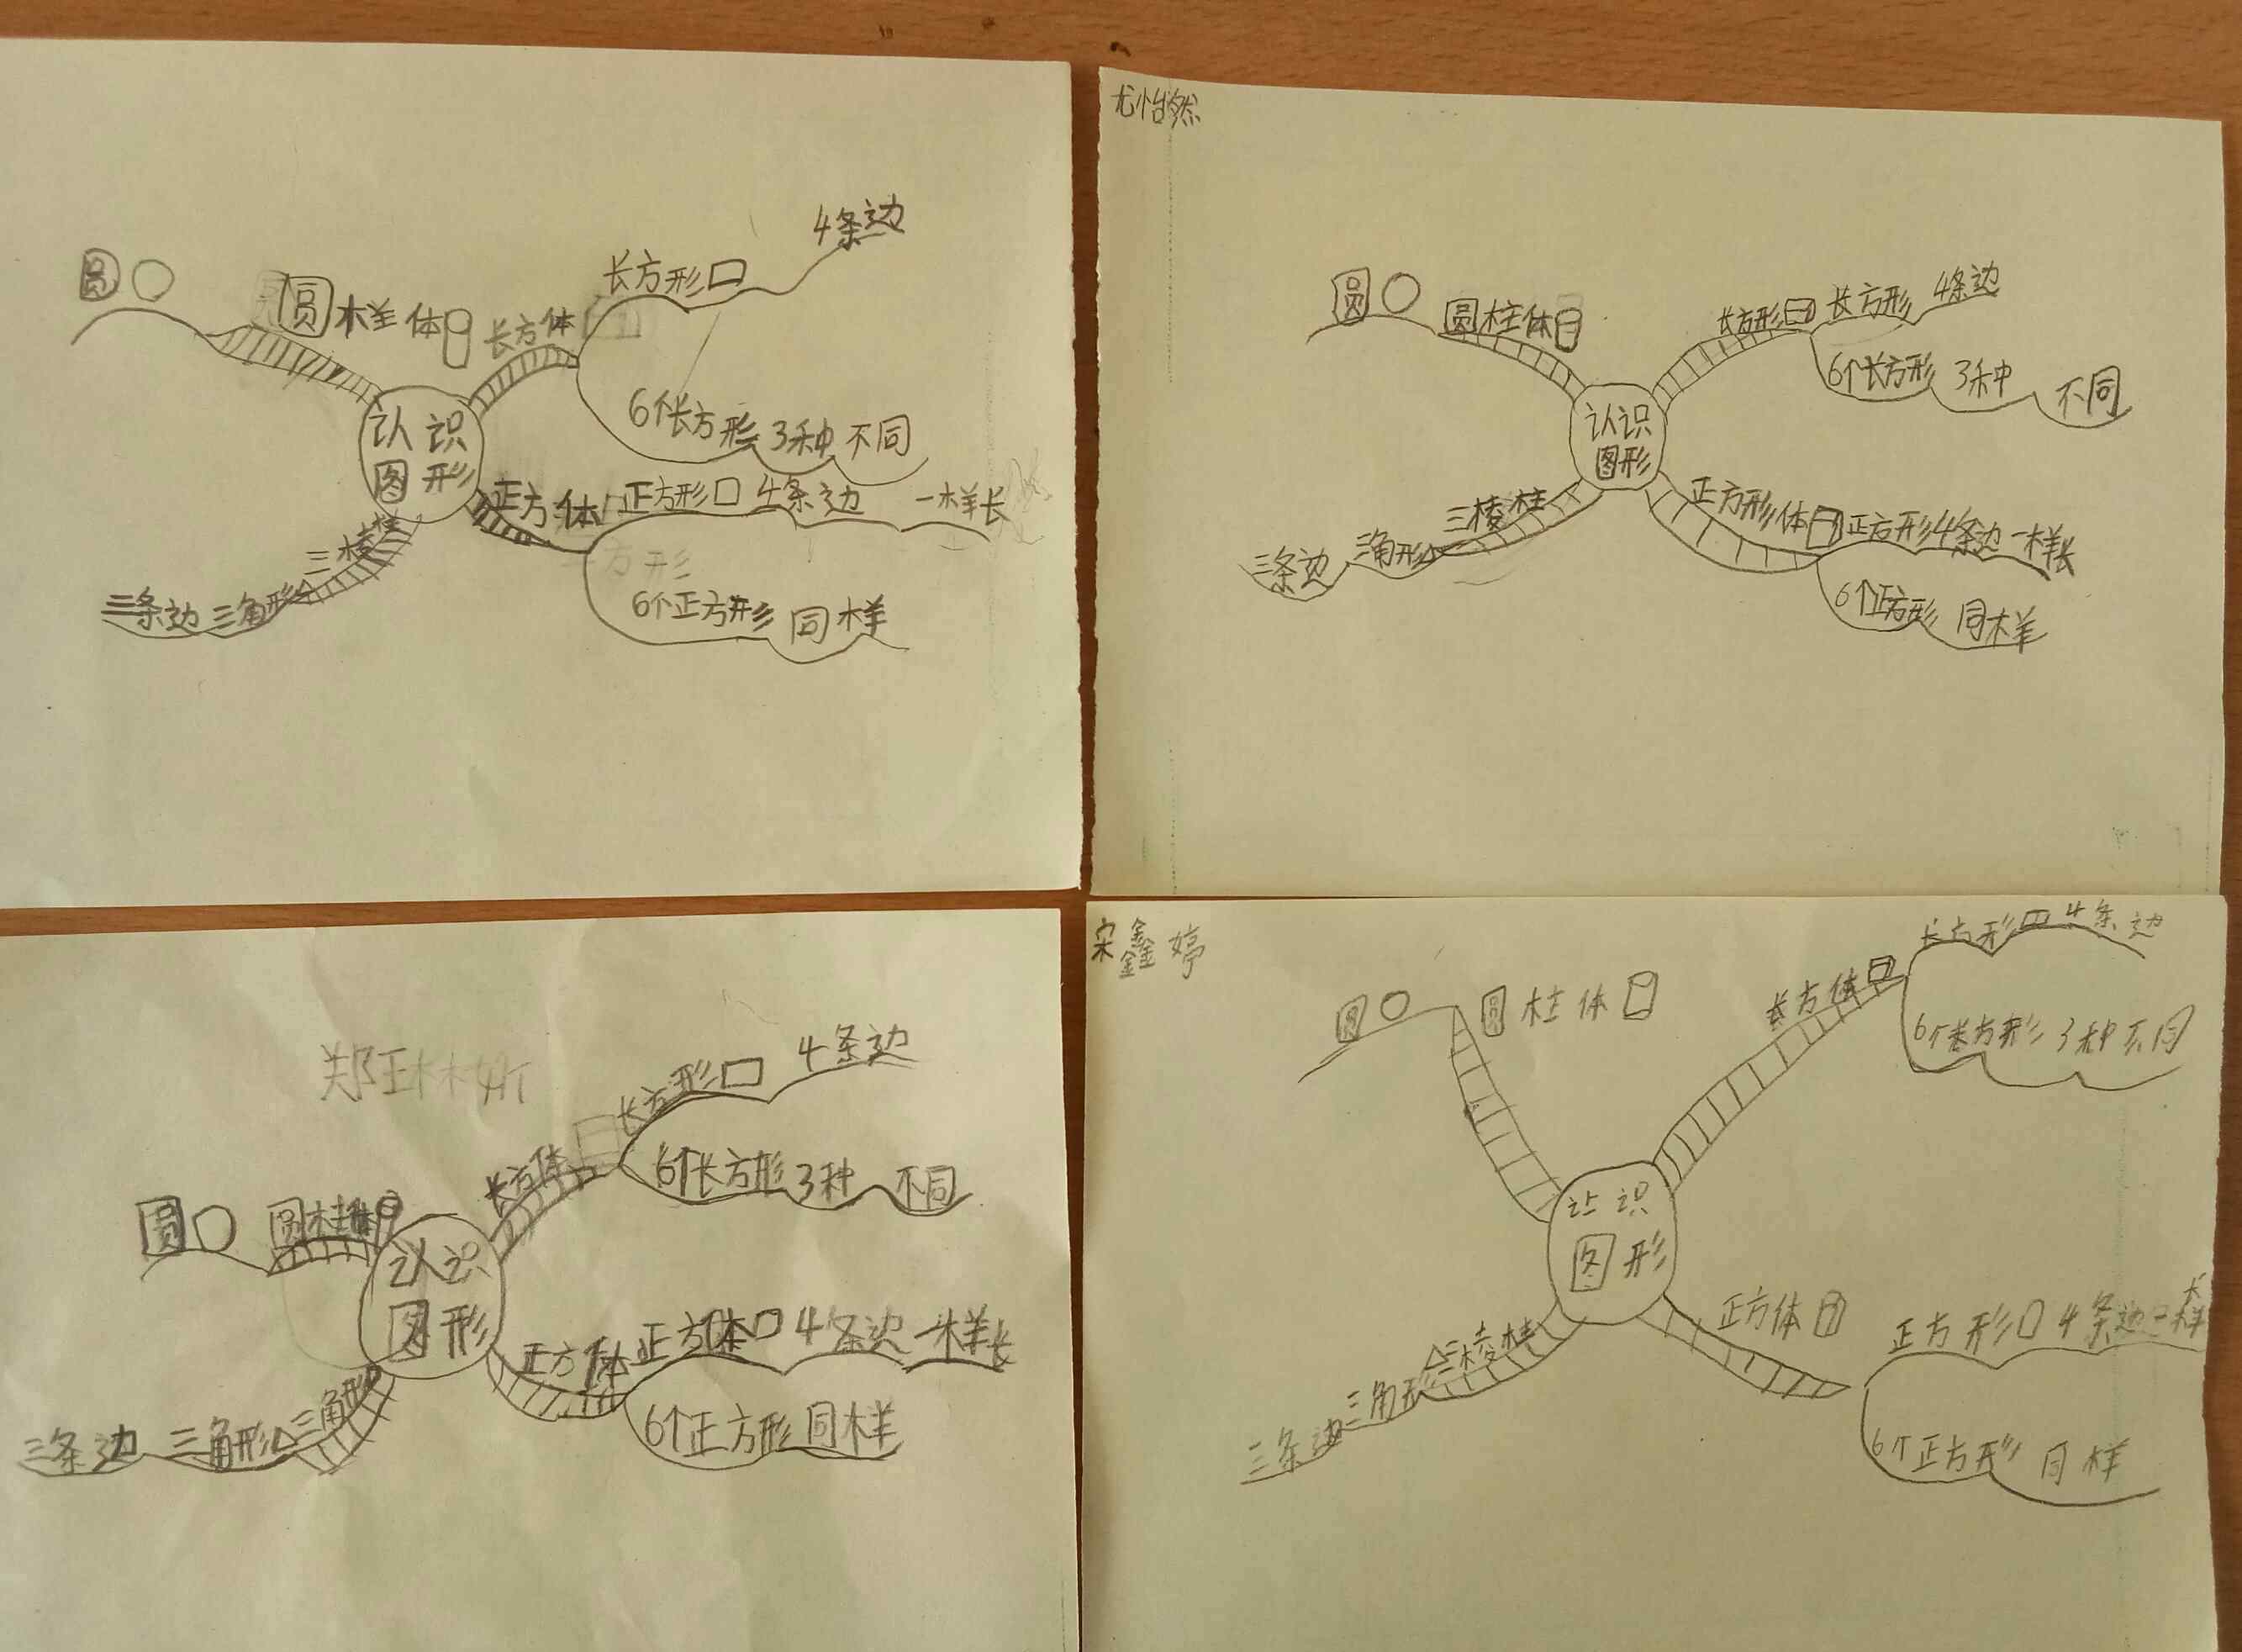 圆 圆样体 长方体 长方形 4条边
6个长方形 3种 不同
认识
图形
正方体 正方形 4条边 一样长
6个正方形 同样
三条边 三角形 三棱柱
尤怡然
圆 圆柱体 长方形 长方形 4条边
6个长方形 3种 不同
认识
图形
正方形体 正方形 4条边 一样长
6个正方形 同样
三条边 三角形 三棱柱
郑
圆 圆柱体 长方体 长方形 4条边
6个长方形 3种 不同
认识
图形
正方体 正方体 4条边 一样长
6个正方形 同样
三条边 三角形 三角形
宋鑫婷
圆 圆柱体 长方体 长方形 4条边
6个长方形 3种不同
认识
图形
正方体 正方形 4条边一样长
6个正方形 同样
三条边 三角形 三棱柱